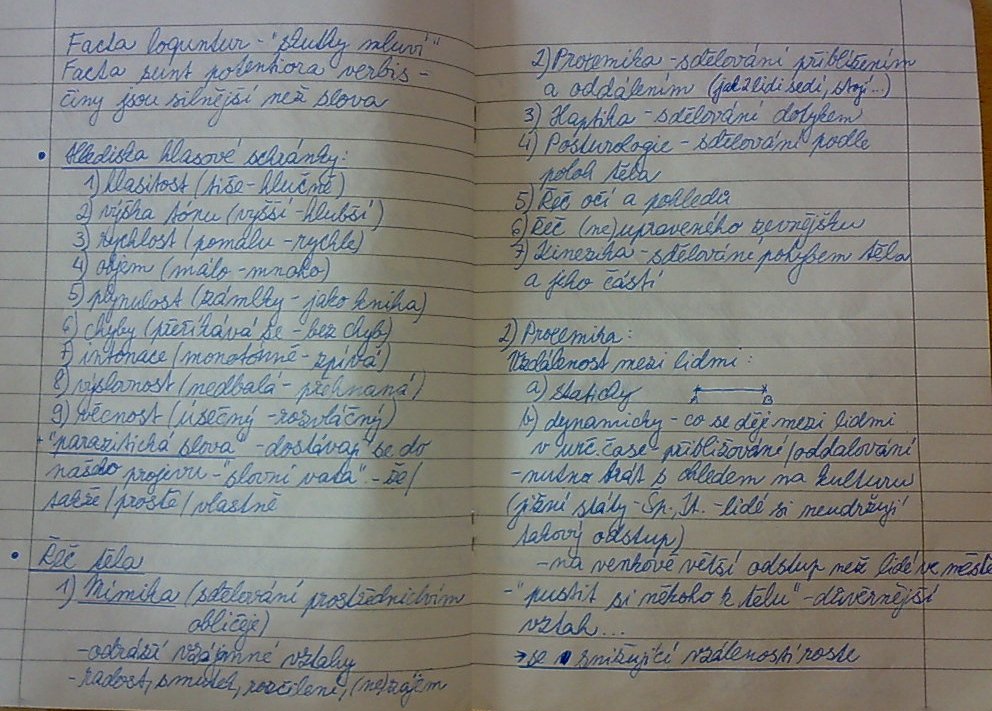 Facta loquntur - "skutky mluví"
Facta sunt potentiora verbis -
činy jsou silnější než slova
• Hlediska hlasové schránky:
1) hlasitost (tiše - hlučně)
2) výška tónu (vyšší - hlubší)
3) rychlost (pomalu - rychle)
4) objem (málo - mnoho)
5) plynulost (zámlky - jako kniha)
6) chyby (přeříkává se - bez chyb)
7) intonace (monotónně - zpívá)
8) výslovnost (nedbalá - přehnaná)
9) věcnost (úsečný - rozvláčný)
+ "parazitická slova" - dostávají se do
našeho projevu - "slovní vata" - že/
takže/prostě/vlastně
• Řeč těla
1) Mimika (sdělování prostřednictvím
obličeje)
- odráží vzájemné vztahy
- radost, smutek, rozčílení, (ne)zájem
2) Proxemika - sdělování přiblížením
a oddálením (jak 2 lidi sedí, stojí...)
3) Haptika - sdělování dotykem
4) Posturologie - sdělování podle
poloh těla
5) Řeč očí a pohledů
6) Řeč (ne)upraveného zevnějšku
7) Kinezika - sdělování pohybem těla
a jeho částí
2) Proxemika:
Vzdálenost mezi lidmi:
a) staticky A B
b) dynamicky - co se děje mezi lidmi
v urč. čase - přibližování/oddalování
- nutno brát s ohledem na kulturu
(jižní státy - Šp., It. - lidé si neudržují
takový odstup)
- na venkově větší odstup než lidé ve městě
- "pustit si někoho k tělu" - důvěrnější
vztah...
→ se snižující vzáleností roste